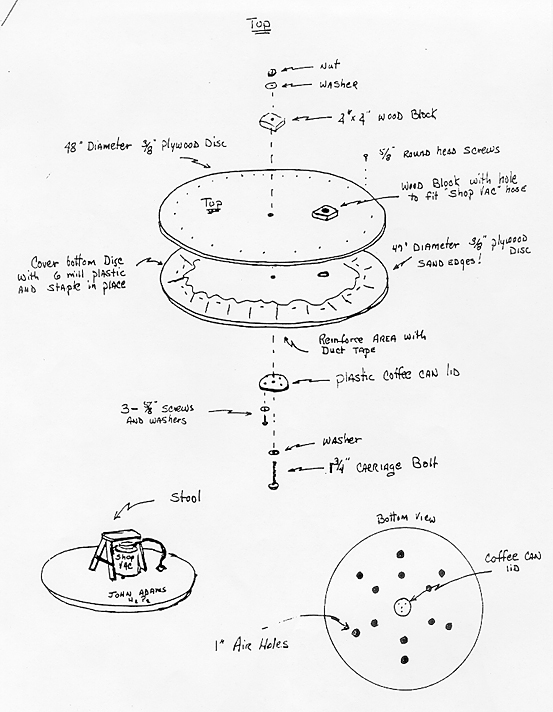 Top
Nut
WASHER
4" x 4" WOOD BLOCK
48" DIAMETER 3/8" PLYWOOD DISC
5/8" ROUND HEAD SCREWS
WOOD BLOCK WITH HOLE
TO FIT "SHOP VAC" HOSE
Top
COVER BOTTOM DISC
WITH 6 MILL PLASTIC
AND STAPLE IN PLACE
DIAMETER 3/8" PLYWOOD
DISC
SAND EDGES!
REINFORCE AREA WITH
DUCT TAPE
PLASTIC COFFEE CAN LID
3 - 5/8" SCREWS
AND WASHERS
WASHER
1 3/4" CARRIAGE BOLT
STOOL
SHOP
VAC
JOHN ADAMS
BOTTOM VIEW
COFFEE CAN
LID
1" AIR HOLES